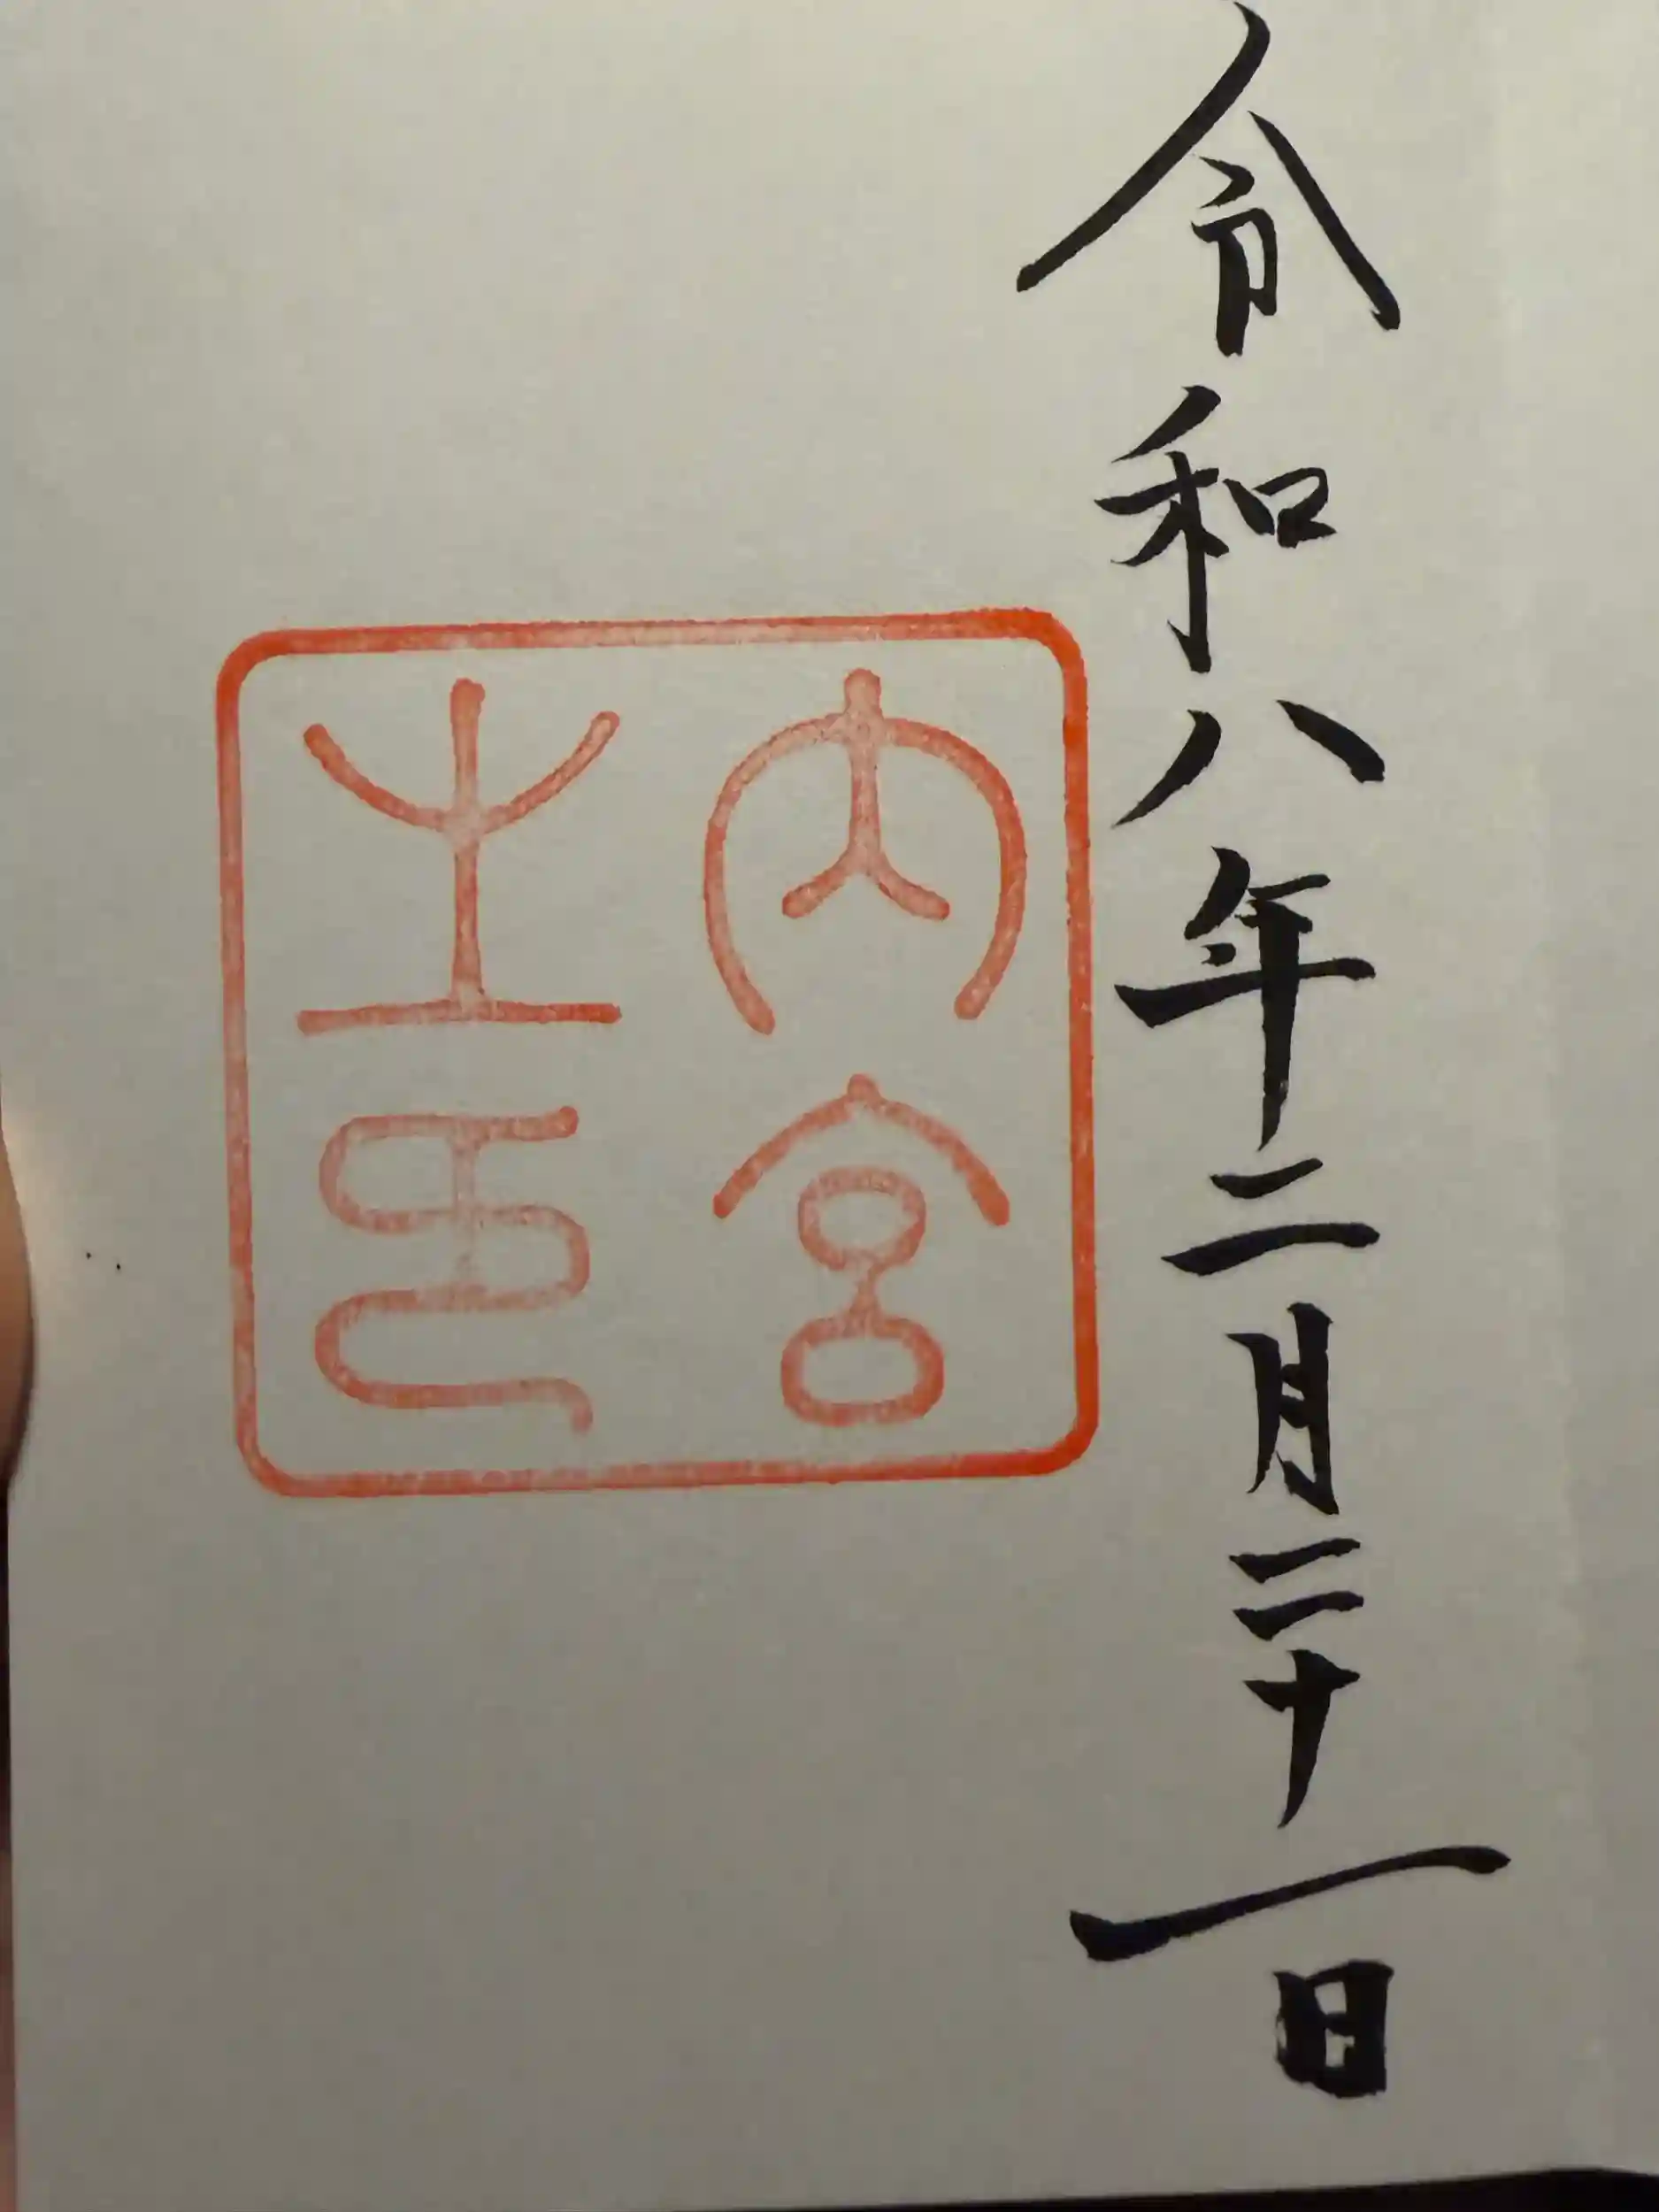 令和八年二月二十一日
内宮
之印